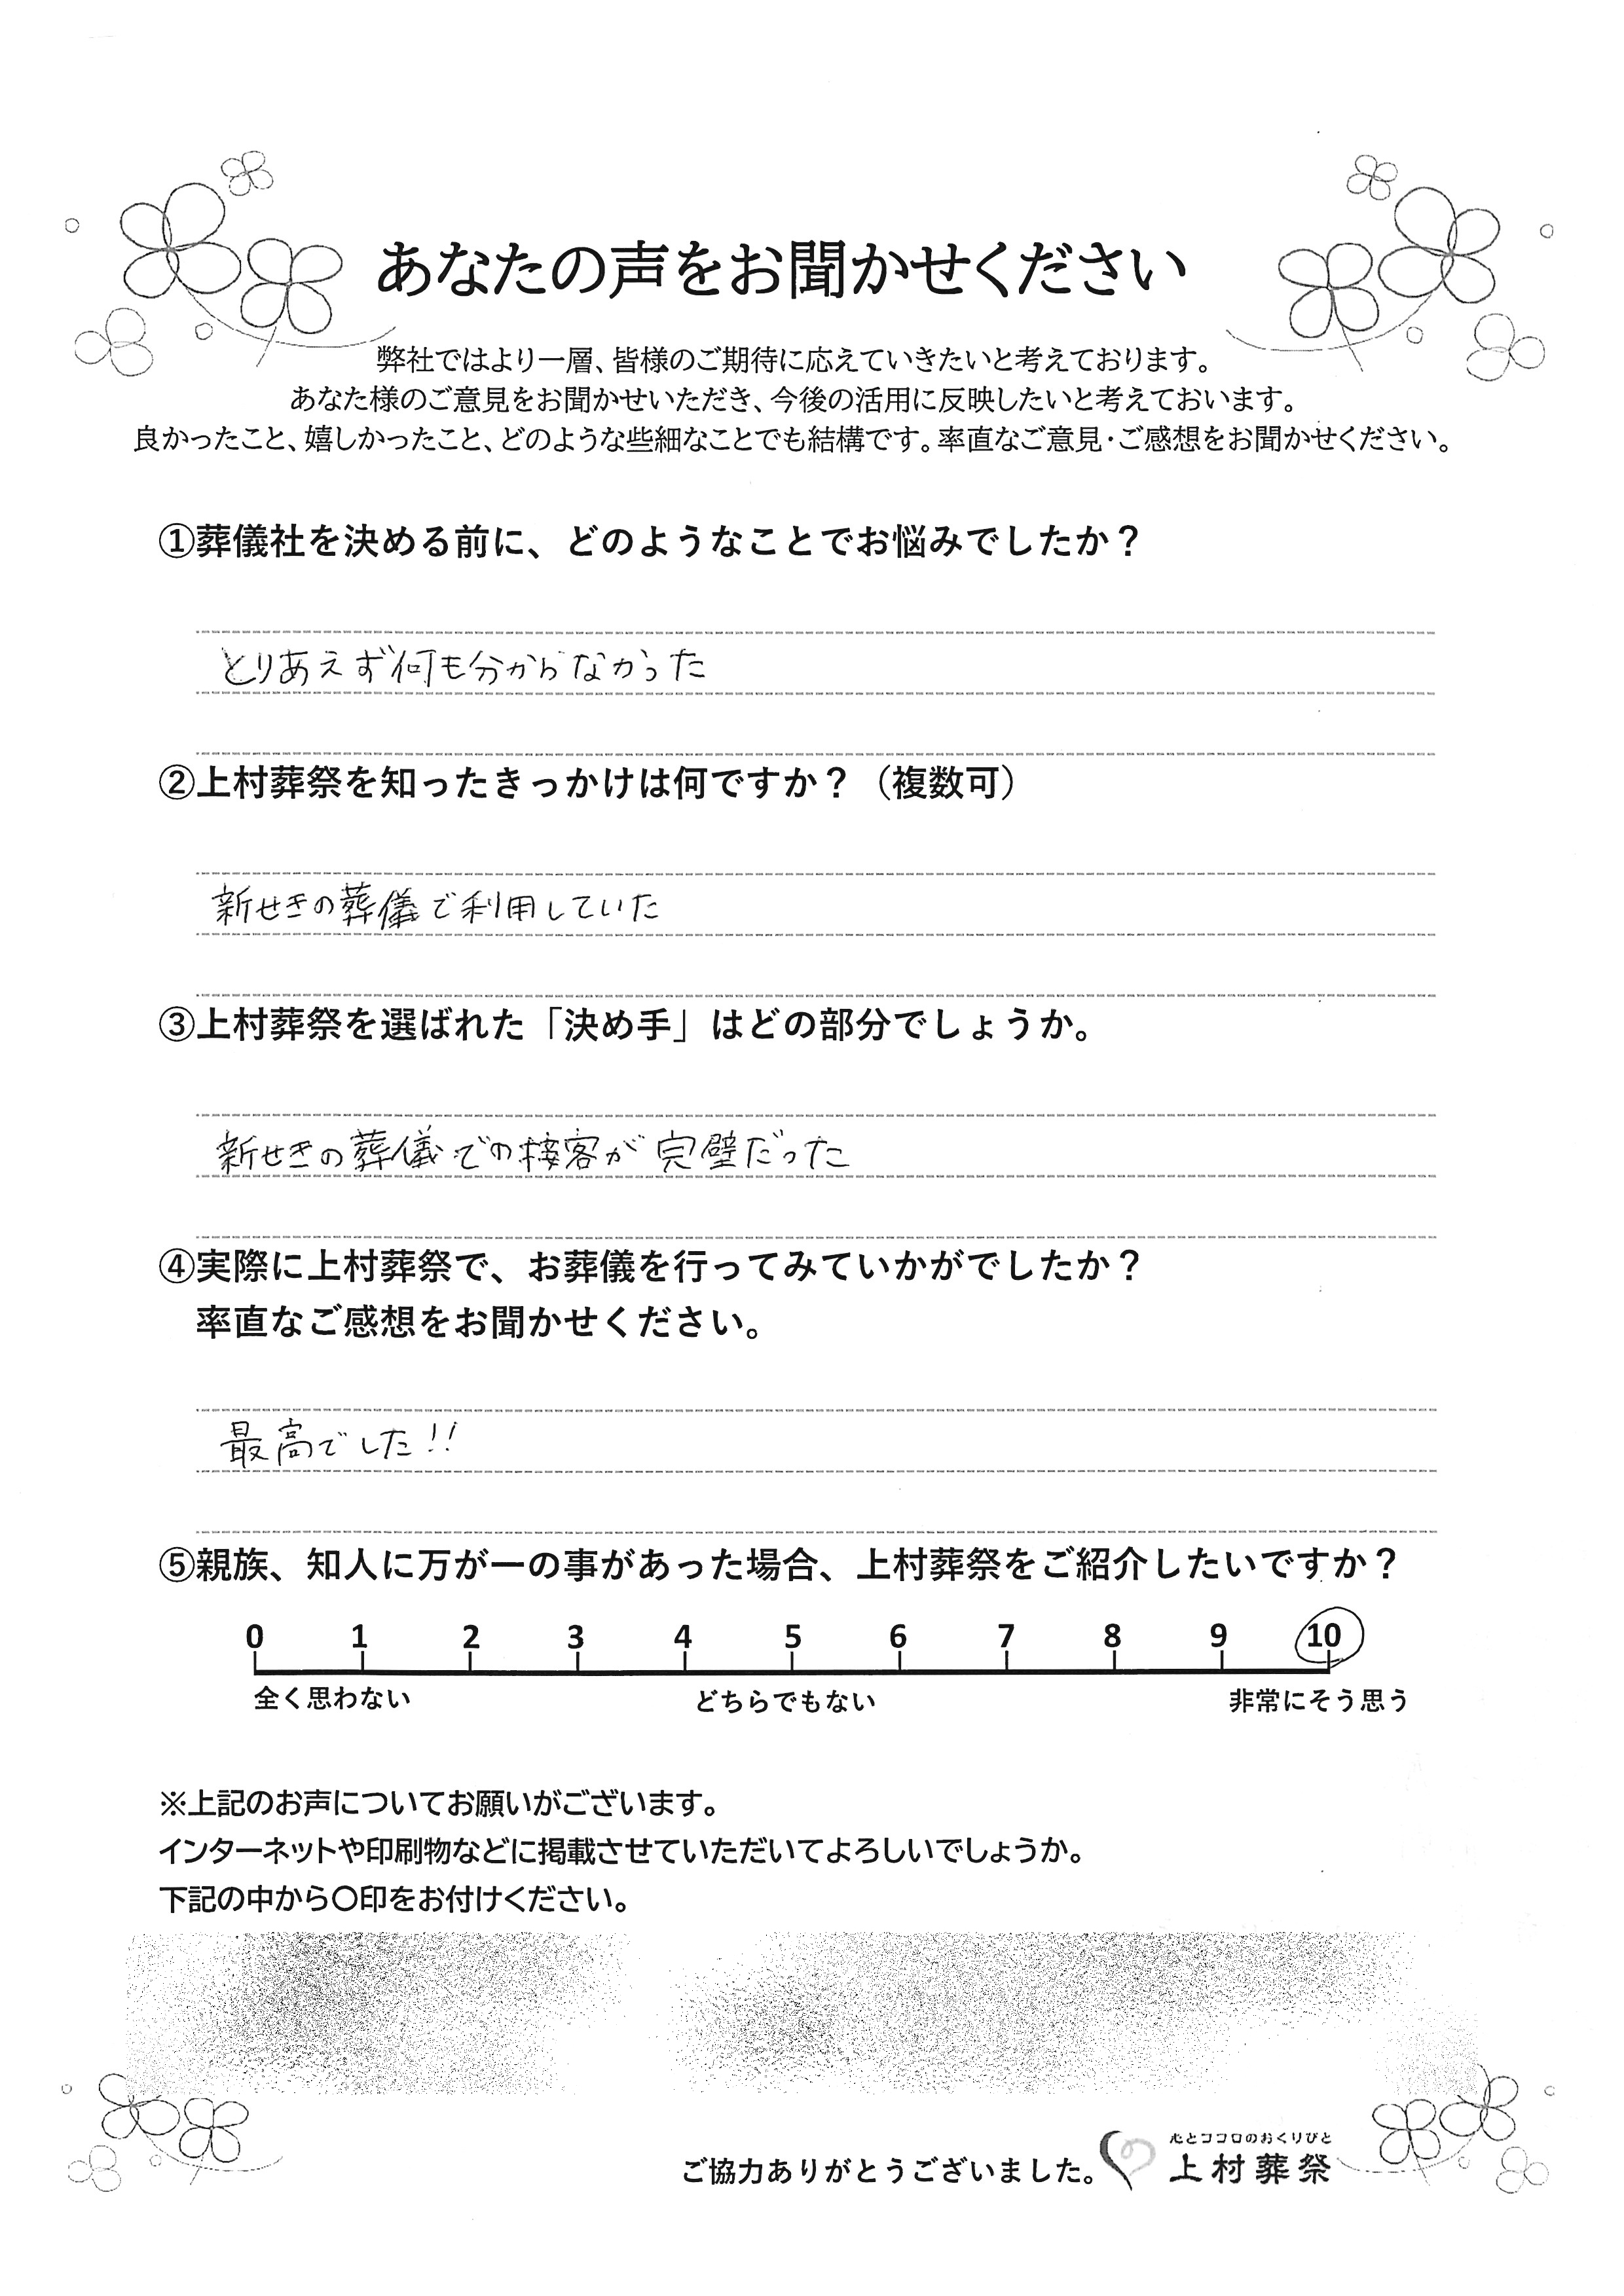 あなたの声をお聞かせください
弊社ではより一層、皆様のご期待に応えていきたいと考えております。
あなた様のご意見をお聞かせいただき、今後の活用に反映したいと考えておいます。
良かったこと、嬉しかったこと、どのような些細なことでも結構です。率直なご意見・ご感想をお聞かせください。
①葬儀社を決める前に、どのようなことでお悩みでしたか？
とりあえず何も分からなかった
②上村葬祭を知ったきっかけは何ですか？（複数可）
新せきの葬儀で利用していた
③上村葬祭を選ばれた「決め手」はどの部分でしょうか。
新せきの葬儀での接客が完璧だった
④実際に上村葬祭で、お葬儀を行ってみていかがでしたか？
率直なご感想をお聞かせください。
最高でした!!
⑤親族、知人に万が一の事があった場合、上村葬祭をご紹介したいですか？
0 1 2 3 4 5 6 7 8 9 10
全く思わない どちらでもない 非常にそう思う
※上記のお声についてお願いがございます。
インターネットや印刷物などに掲載させていただいてよろしいでしょうか。
下記の中から〇印をお付けください。
心とココロのおくりびと
ご協力ありがとうございました。 上村葬祭